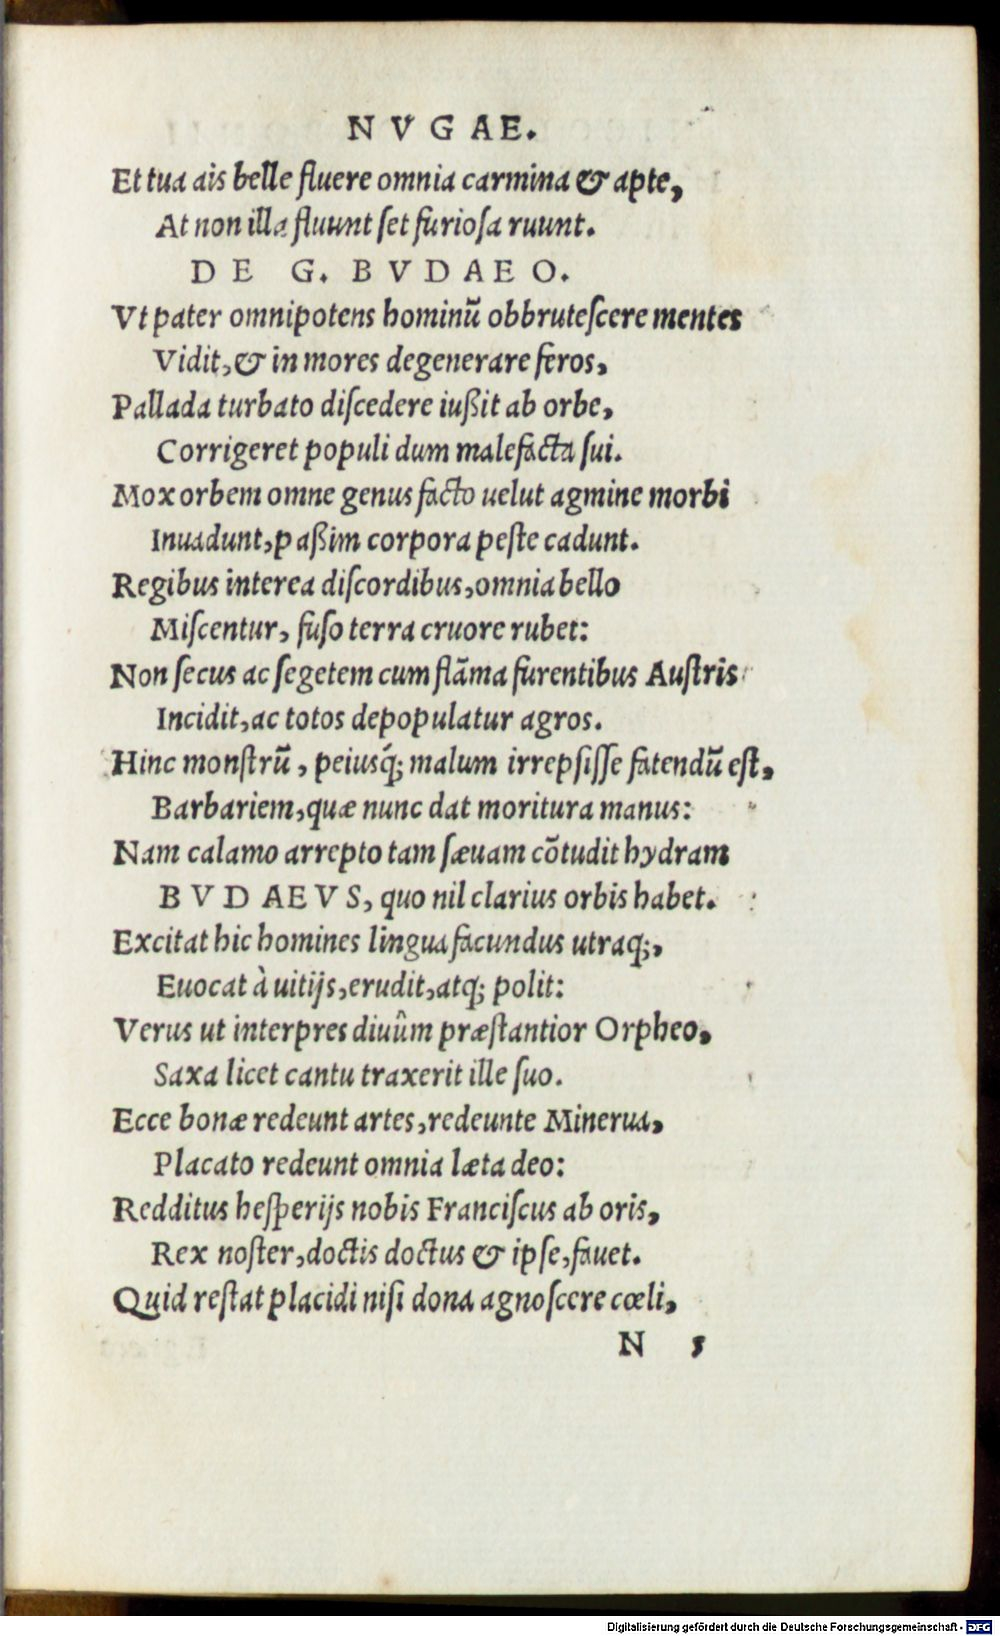 NVGAE.
Et tua ais belle fluere omnia carmina & apte,
At non illa fluunt ſet furioſa ruunt.
DE G. BVDAEO.
Vt pater omnipotens hominū obbruteſcere mentes
Vidit, & in mores degenerare feros,
Pallada turbato diſcedere iußit ab orbe,
Corrigeret populi dum malefacta ſui.
Mox orbem omne genus facto uelut agmine morbi
Inuadunt, paßim corpora peſte cadunt.
Regibus interea diſcordibus, omnia bello
Miſcentur, fuſo terra cruore rubet:
Non ſecus ac ſegetem cum flāma furentibus Auſtris
Incidit, ac totos depopulatur agros.
Hinc monſtrū, peiusq́; malum irrepſiſſe fatendū eſt,
Barbariem, quæ nunc dat moritura manus:
Nam calamo arrepto tam ſæuam cōtudit hydram
BVDAEVS, quo nil clarius orbis habet.
Excitat hic homines lingua facundus utraq;,
Euocat à uitijs, erudit, atq; polit:
Verus ut interpres diuûm præſtantior Orpheo,
Saxa licet cantu traxerit ille ſuo.
Ecce bonæ redeunt artes, redeunte Minerua,
Placato redeunt omnia læta deo:
Redditus heſperijs nobis Franciſcus ab oris,
Rex noſter, doctis doctus & ipſe, fauet.
Quid reſtat placidi niſi dona agnoſcere cœli,
N 5
Digitalisierung gefördert durch die Deutsche Forschungsgemeinschaft - DFG